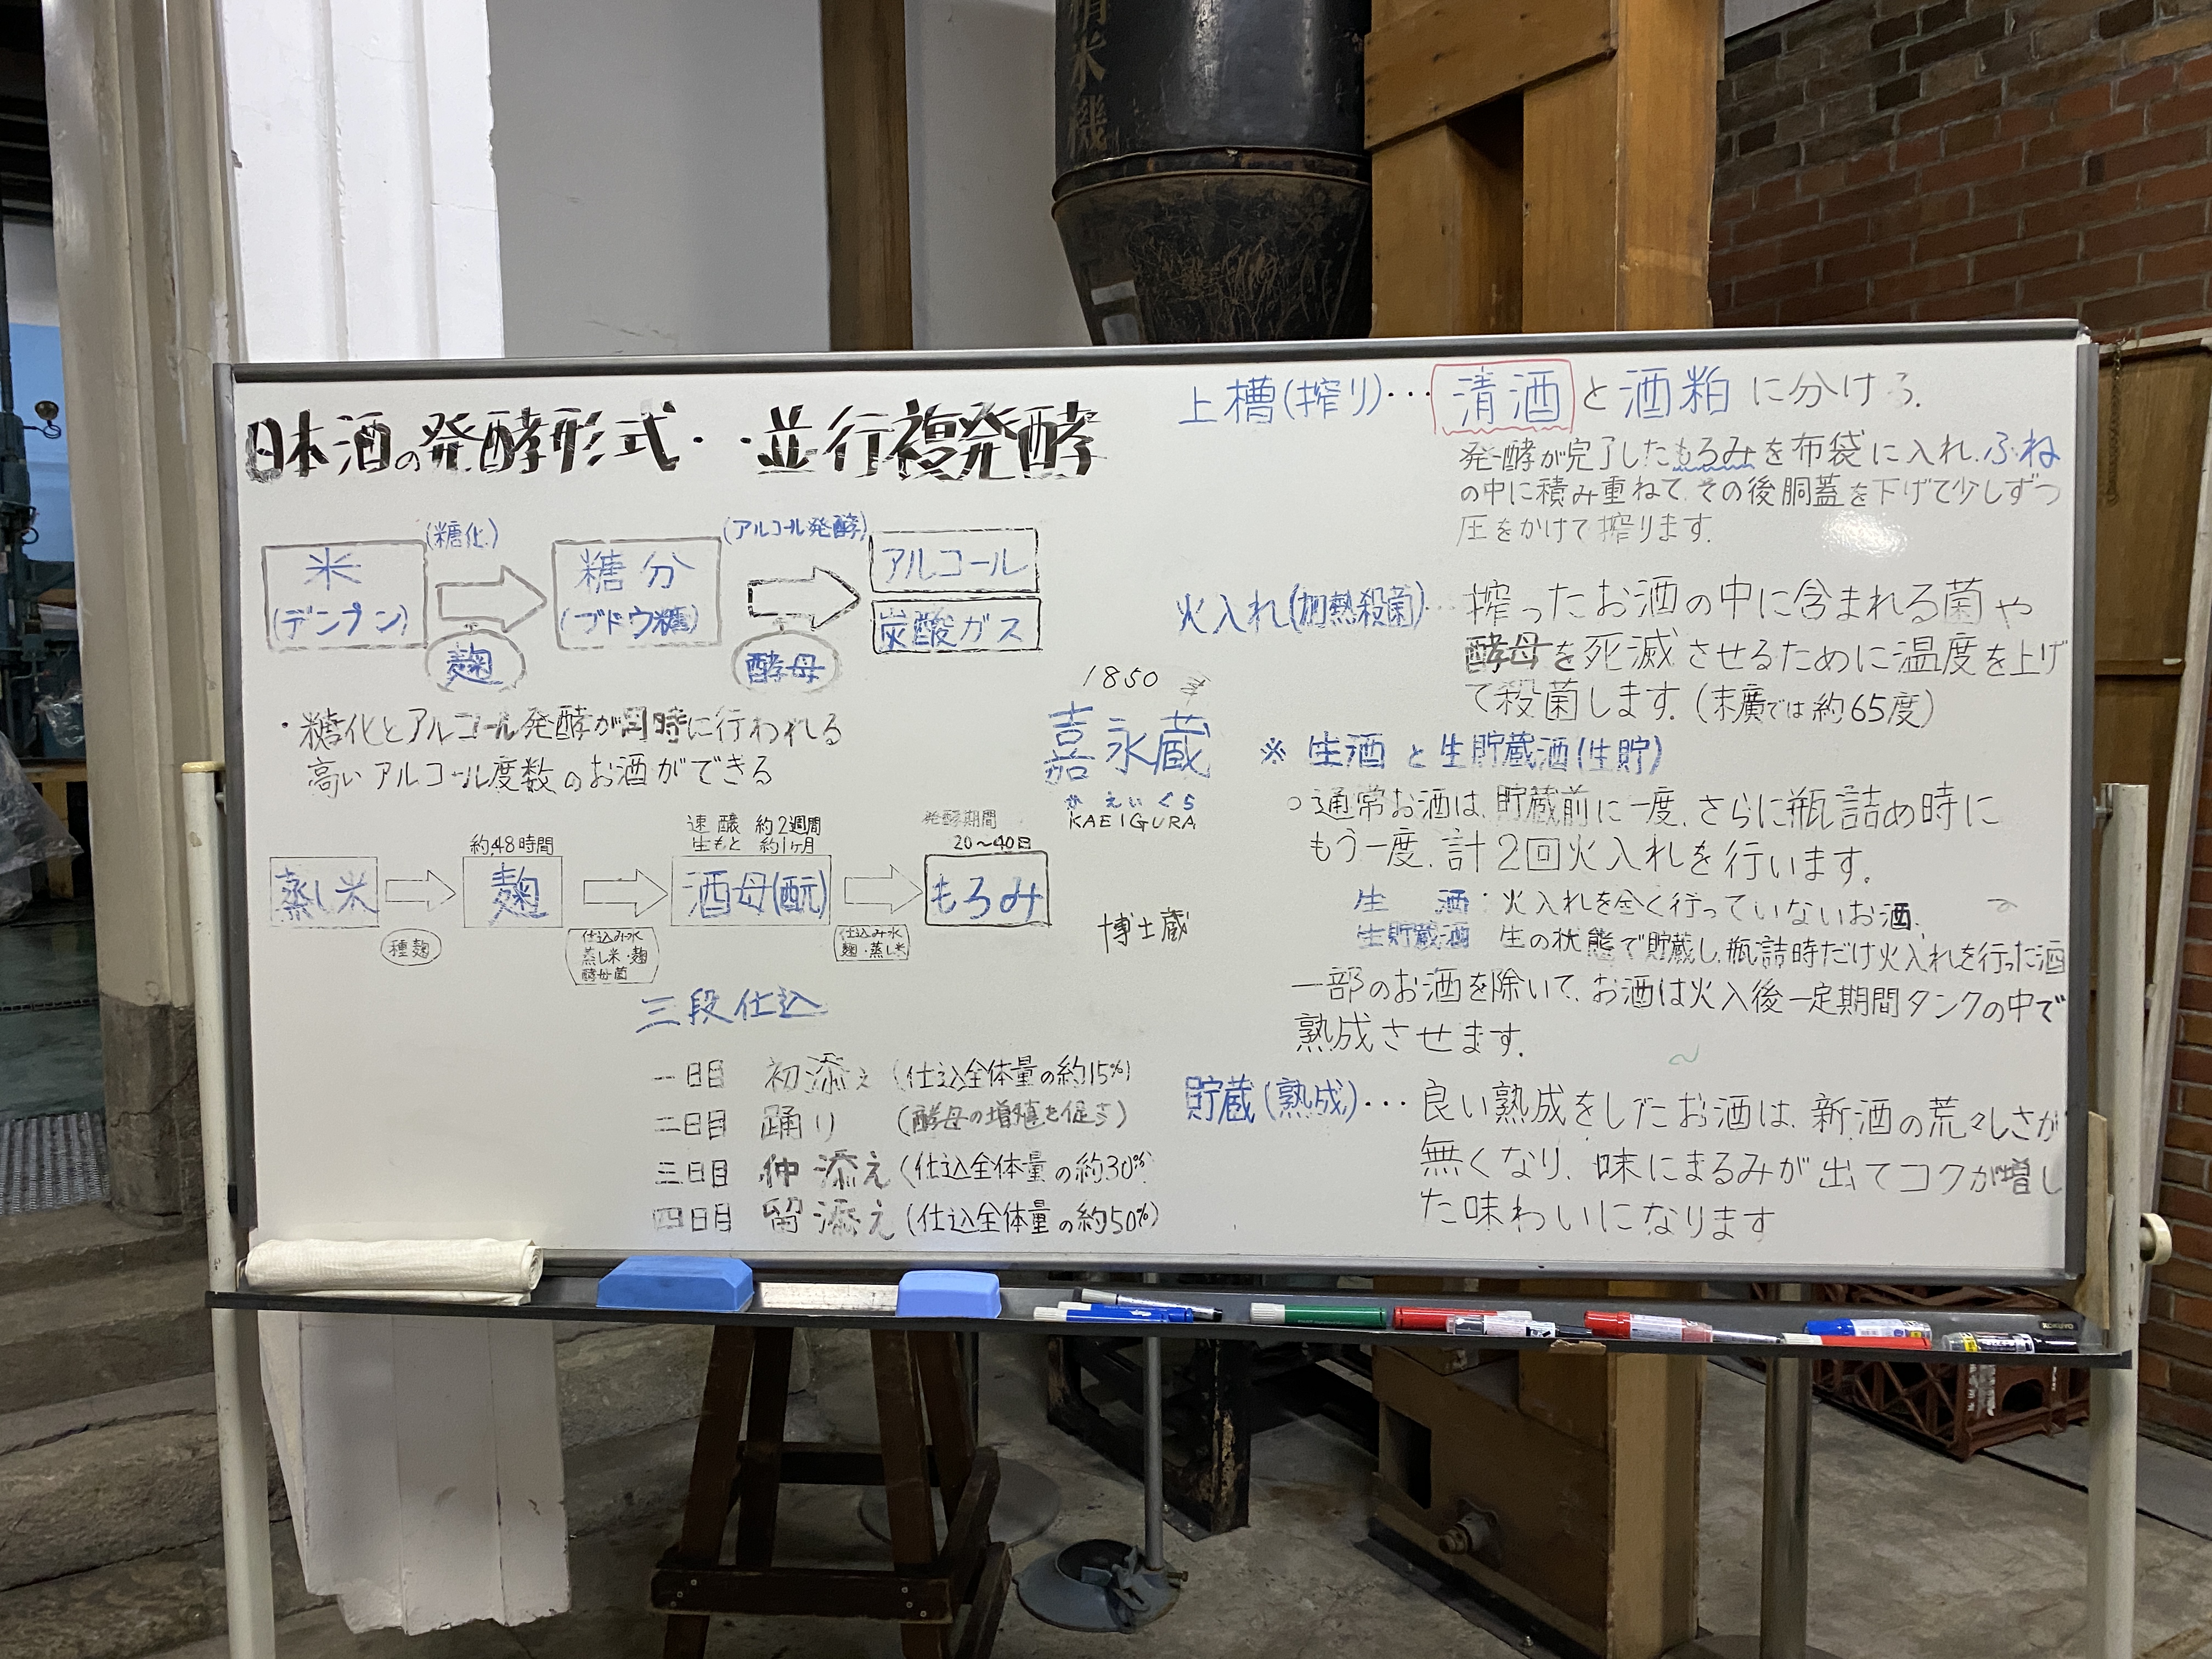 精米機
日本酒の発酵形式・・・並行複発酵
(糖化)
(アルコール発酵)
米
(デンプン)
糖分
(ブドウ糖)
アルコール
炭酸ガス
麹
酵母
・糖化とアルコール発酵が同時に行われる
高いアルコール度数のお酒ができる
1850年
嘉永蔵
かえいぐら
KAEIGURA
約48時間
速醸 約2週間
生もと 約1ヶ月
発酵期間
20〜40日
蒸し米
麹
酒母(酛)
もろみ
種麹
仕込み水
蒸し米・麹
酵母菌
仕込み水
麹・蒸し米
博士蔵
三段仕込
一日目 初添え (仕込全体量の約15%)
二日目 踊り (酵母の増殖を促す)
三日目 仲添え (仕込全体量の約30%)
四日目 留添え (仕込全体量の約50%)
上槽(搾り)・・・清酒と酒粕に分ける.
発酵が完了したもろみを布袋に入れ、ふね
の中に積み重ねて、その後胴蓋を下げて少しずつ
圧をかけて搾ります.
火入れ(加熱殺菌)・・・搾ったお酒の中に含まれる菌や
酵母を死滅させるために温度を上げ
て殺菌します. (末廣では約65度)
※ 生酒と生貯蔵酒(生貯)
○通常お酒は、貯蔵前に一度、さらに瓶詰め時に
もう一度、計2回火入れを行います.
生 酒:火入れを全く行っていないお酒.
生貯蔵酒 生の状態で貯蔵し、瓶詰時だけ火入れを行った酒
一部のお酒を除いて、お酒は火入後一定期間タンクの中で
熟成させます.
貯蔵(熟成)・・・良い熟成をしたお酒は、新酒の荒々しさが
無くなり、味にまるみが出てコクが増し
た味わいになります
KOKUYO